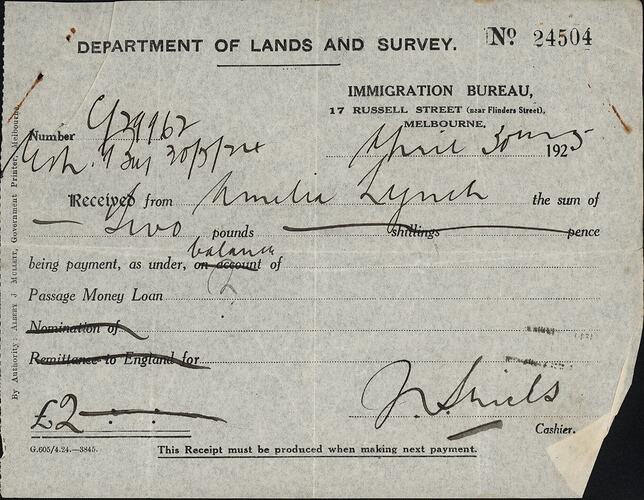 DEPARTMENT OF LANDS AND SURVEY. No 24504
IMMIGRATION BUREAU,
17 RUSSELL STREET (near Flinders Street),
MELBOURNE,
Number C/29962
20/5/24 April 30 1925
Received from Amelia Lynch the sum of
Two pounds shillings pence
balance
being payment, as under, on account of
Passage Money Loan
Nomination of
Remittance to England for
£2
Cashier.
G.605/4.24.—3845. This Receipt must be produced when making next payment.
By Authority: ALBERT J MULLETT, Government Printer, Melbourne.